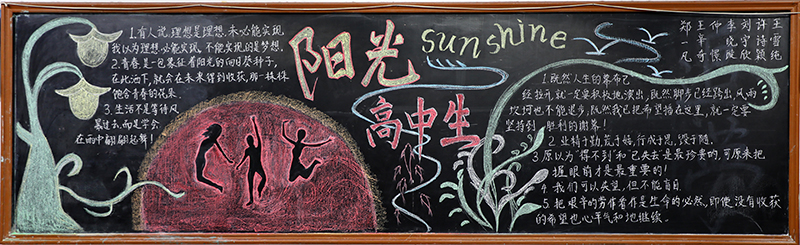 1.有人说,理想是理想,未必能实现,
我以为理想必能实现,不能实现的是梦想。
2.青春是一包象征着阳光的向日葵种子,
在此洒下,就会在未来得到收获,那一株株
饱含青春的花朵。
3.生活不是等待风
暴过去,而是学会
在雨中翩翩起舞!
阳光
sunshine
高中生
郑王仲李刘许王
诗雪
凡奇 欣颖纯
1.既然人生的幕布已
经拉开,就一定要积极地演出,既然脚步已经跨出,风雨
坎坷也不能退步,既然我已把希望播在这里,就一定要
坚持到胜利的谢幕!
2.业精于勤,荒于嬉,行成于思,毁于随。
3.原以为“得不到”和“已失去”是最珍贵的,可原来把
握眼前才是最重要的!
4.我们可以失望,但不能盲目
5.把艰辛的劳作看作是生命的必然,即使没有收获
的希望也心平气和地继续。